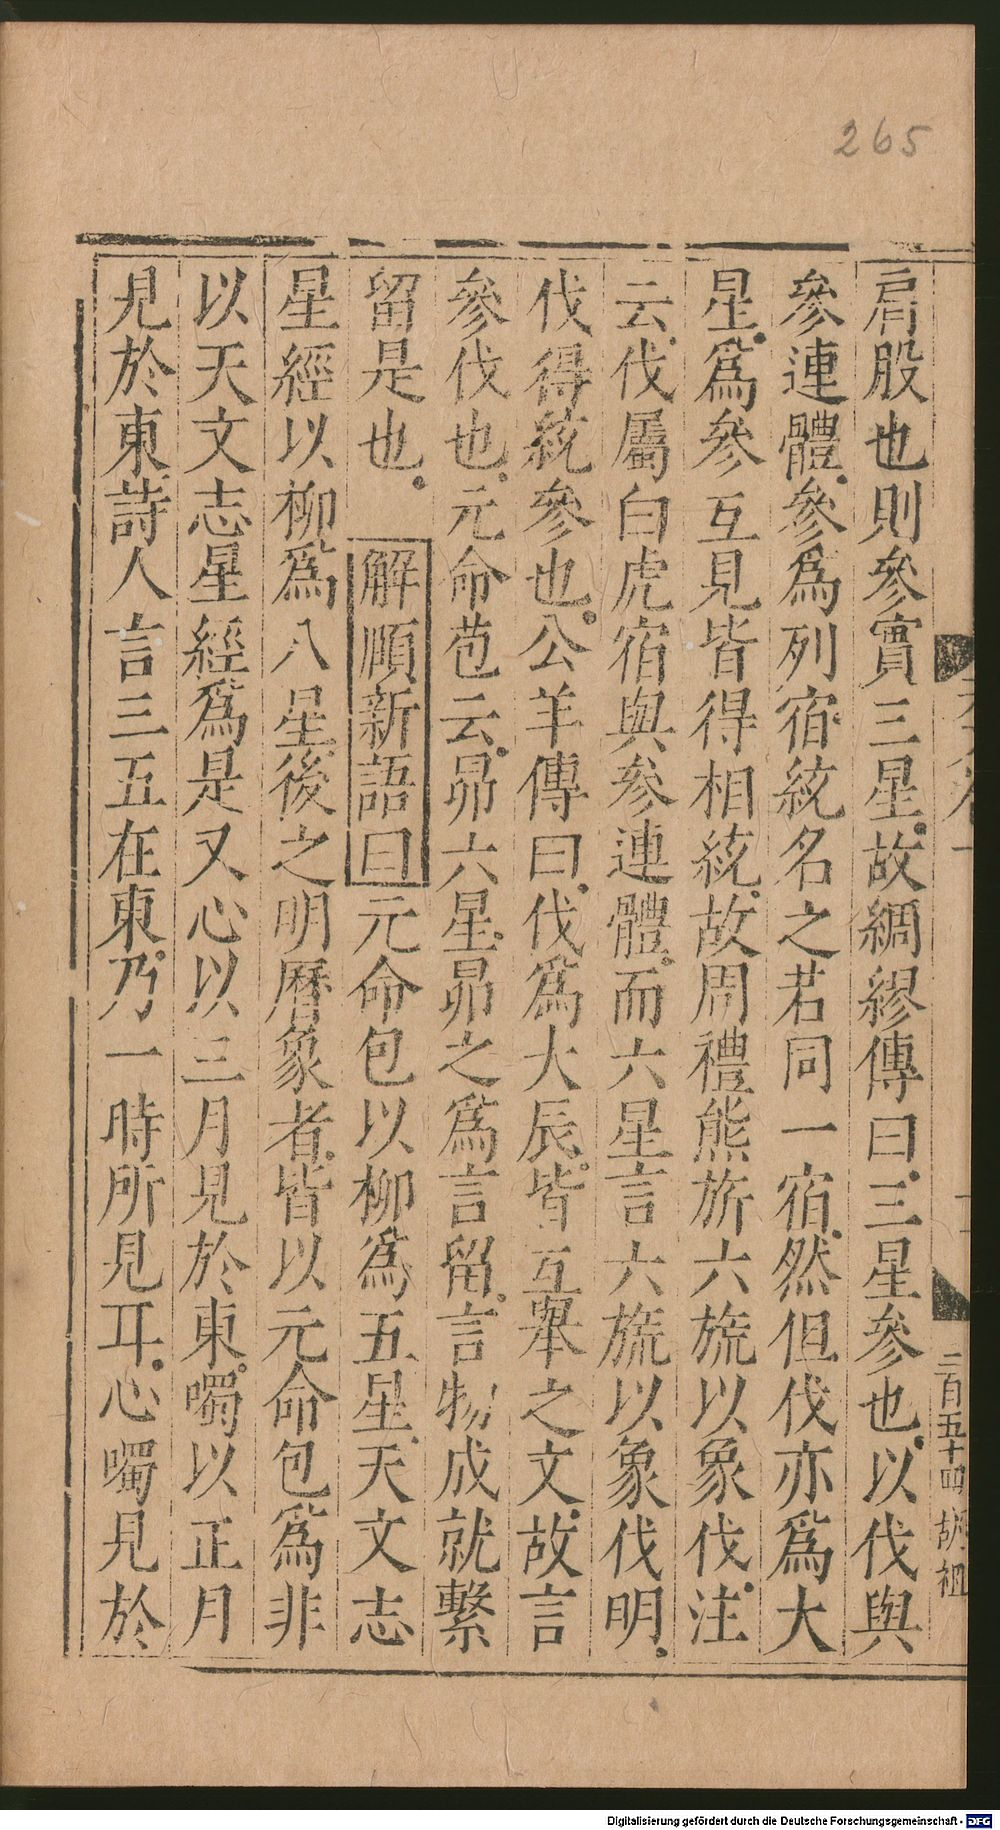 265
肩股也則參實三星故綢繆傳曰三星參也以伐與
參連體參為列宿統名之若同一宿然但伐亦爲大
星爲參互見皆得相統故周禮熊旂六旒以象伐注
云伐屬白虎宿與參連體而六星言六旒以象伐明
伐得統參也公羊傳曰伐爲大辰皆互舉之文故言
參伐也元命苞云昴六星昴之爲言留言物成就繫
留是也 解頤新語曰元命包以柳爲五星天文志
星經以柳爲八星後之明曆象者皆以元命包爲非
以天文志星經爲是又心以三月見於東噣以正月
見於東詩人言三五在東乃一時所見耳心噣見於
二百五十四 胡祖
Digitalisierung gefördert durch die Deutsche Forschungsgemeinschaft - DFG